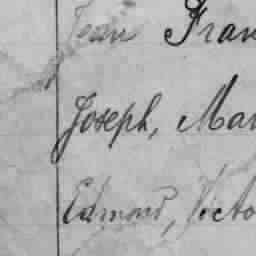 Jean Fran
Joseph, Mar
Edmond, Victo